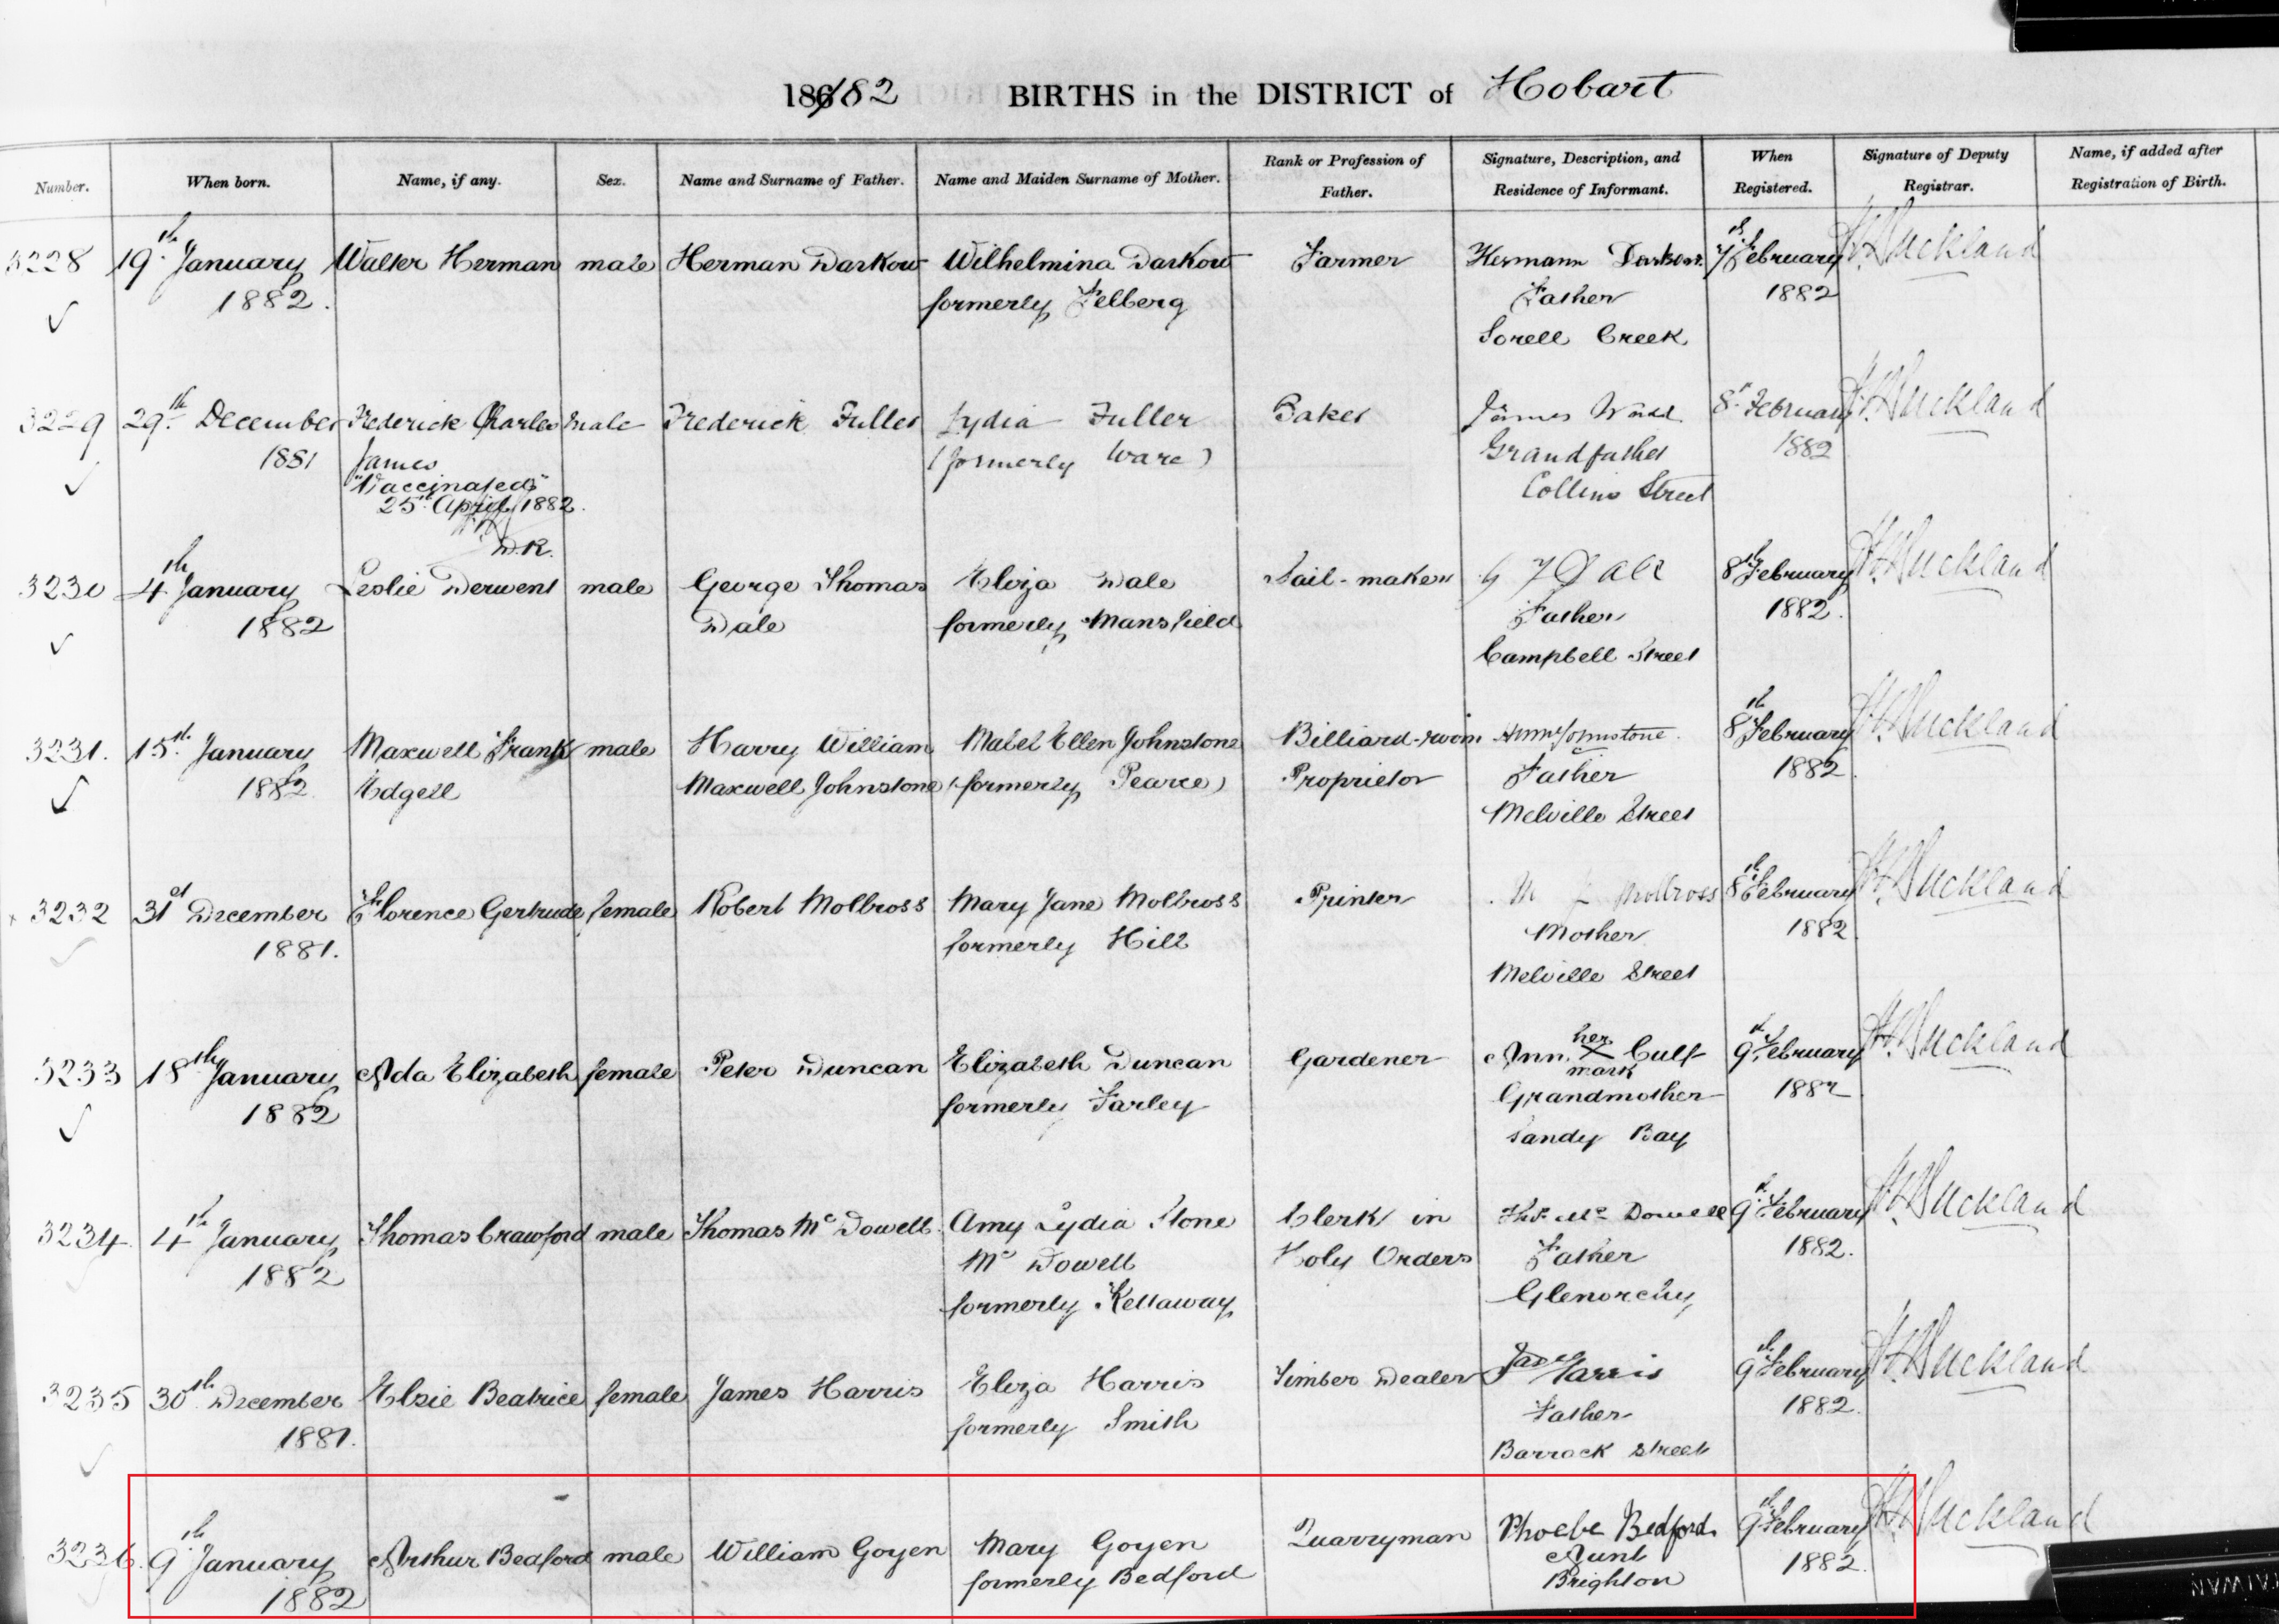 186/82 BIRTHS in the DISTRICT of Hobart
Number. When born. Name, if any. Sex. Name and Surname of Father. Name and Maiden Surname of Mother. Rank or Profession of Father. Signature, Description, and Residence of Informant. When Registered. Signature of Deputy Registrar. Name, if added after Registration of Birth.
3228 19th January Walter Herman male Herman Darkow Wilhelmina Darkow Farmer Hermann Darkow 7th February Huckland
1882. formerly Felberg Father 1882
Sorell Creek
3229 29th December Frederick Charles male Frederick Fuller Lydia Fuller Baker James Ward 8th February Huckland
1881 James (formerly Ware) Grandfather 1882
"Vaccinated" Collins Street
25th April 1882.
D.R.
3230 4th January Leslie Derwent male George Thomas Eliza Dale Sail-maker G T Dale 8th February Huckland
1882 Dale formerly Mansfield Father 1882.
Campbell Street
3231. 15th January Maxwell Frank male Harry William Mabel Ellen Johnstone Billiard-room Johnstone 8th February Huckland
1882. Edgell Maxwell Johnstone (formerly Pearce) Proprietor Father 1882
Melville Street
3232 31st December Florence Gertrude female Robert Molross Mary Jane Molross Printer M J Molross 8th February Huckland
1881. formerly Hill Mother 1882
Melville Street
3233 18th January Ada Elizabeth female Peter Duncan Elizabeth Duncan Gardener Ann her X mark Cuff 9th February Huckland
1882 formerly Farley Grandmother 1882
Sandy Bay
3234 4th January Thomas Crawford male Thomas Mc Dowell Amy Lydia Stone Clerk in Thos. Mc Dowell 9th February Huckland
1882 Mc Dowell Holy Orders Father 1882.
formerly Kellaway Glenorchy
3235 30th December Elsie Beatrice female James Harris Eliza Harris Timber Dealer James Harris 9th February Huckland
1881. formerly Smith Father 1882.
Barrack Street
3236. 9th January Arthur Bedford male William Goyen Mary Goyen Quarryman Phoebe Bedford 9th February Huckland
1882 formerly Bedford Aunt 1882.
Brighton
TAIWAN